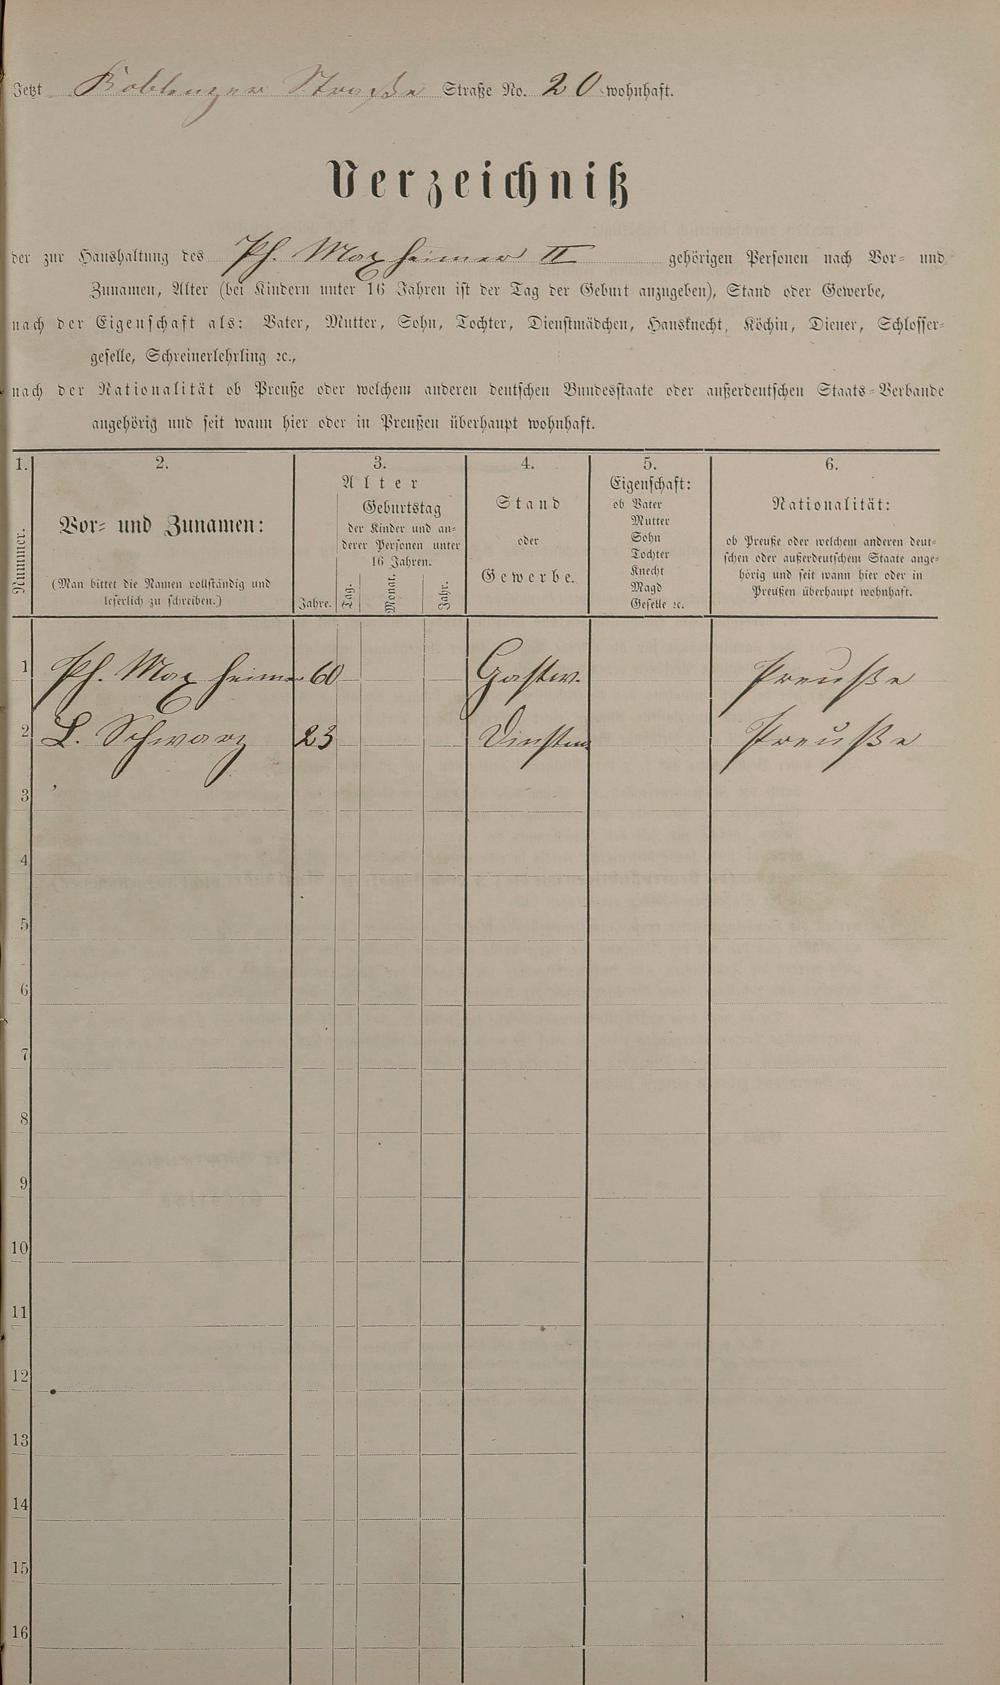 Jetzt Koblenzer Straße Straße No. 20 wohnhaft.
Verzeichniß
der zur Haushaltung des Ph. Maxheimer II gehörigen Personen nach Vor- und
Zunamen, Alter (bei Kindern unter 16 Jahren ist der Tag der Geburt anzugeben), Stand oder Gewerbe,
nach der Eigenschaft als: Vater, Mutter, Sohn, Tochter, Dienstmädchen, Hausknecht, Köchin, Diener, Schlosser-
geselle, Schreinerlehrling ꝛc.,
nach der Nationalität ob Preuße oder welchem anderen deutschen Bundesstaate oder außerdeutschen Staats-Verbande
angehörig und seit wann hier oder in Preußen überhaupt wohnhaft.
1. 2. 3. 4. 5. 6.
Nummer.
Vor- und Zunamen:
(Man bittet die Namen vollständig und
leserlich zu schreiben.)
Alter
Jahre.
Geburtstag
der Kinder und an-
derer Personen unter
16 Jahren.
Tag. Monat. Jahr.
Stand
oder
Gewerbe.
Eigenschaft:
ob Vater
Mutter
Sohn
Tochter
Knecht
Magd
Geselle ꝛc.
Nationalität:
ob Preuße oder welchem anderen deut-
schen oder außerdeutschem Staate ange-
hörig und seit wann hier oder in
Preußen überhaupt wohnhaft.
1 Ph. Maxheimer 60 Gastw. Preuße
2 L. Schwarz 23 Dinstm. Preuße
3
4
5
6
7
8
9
10
11
12
13
14
15
16